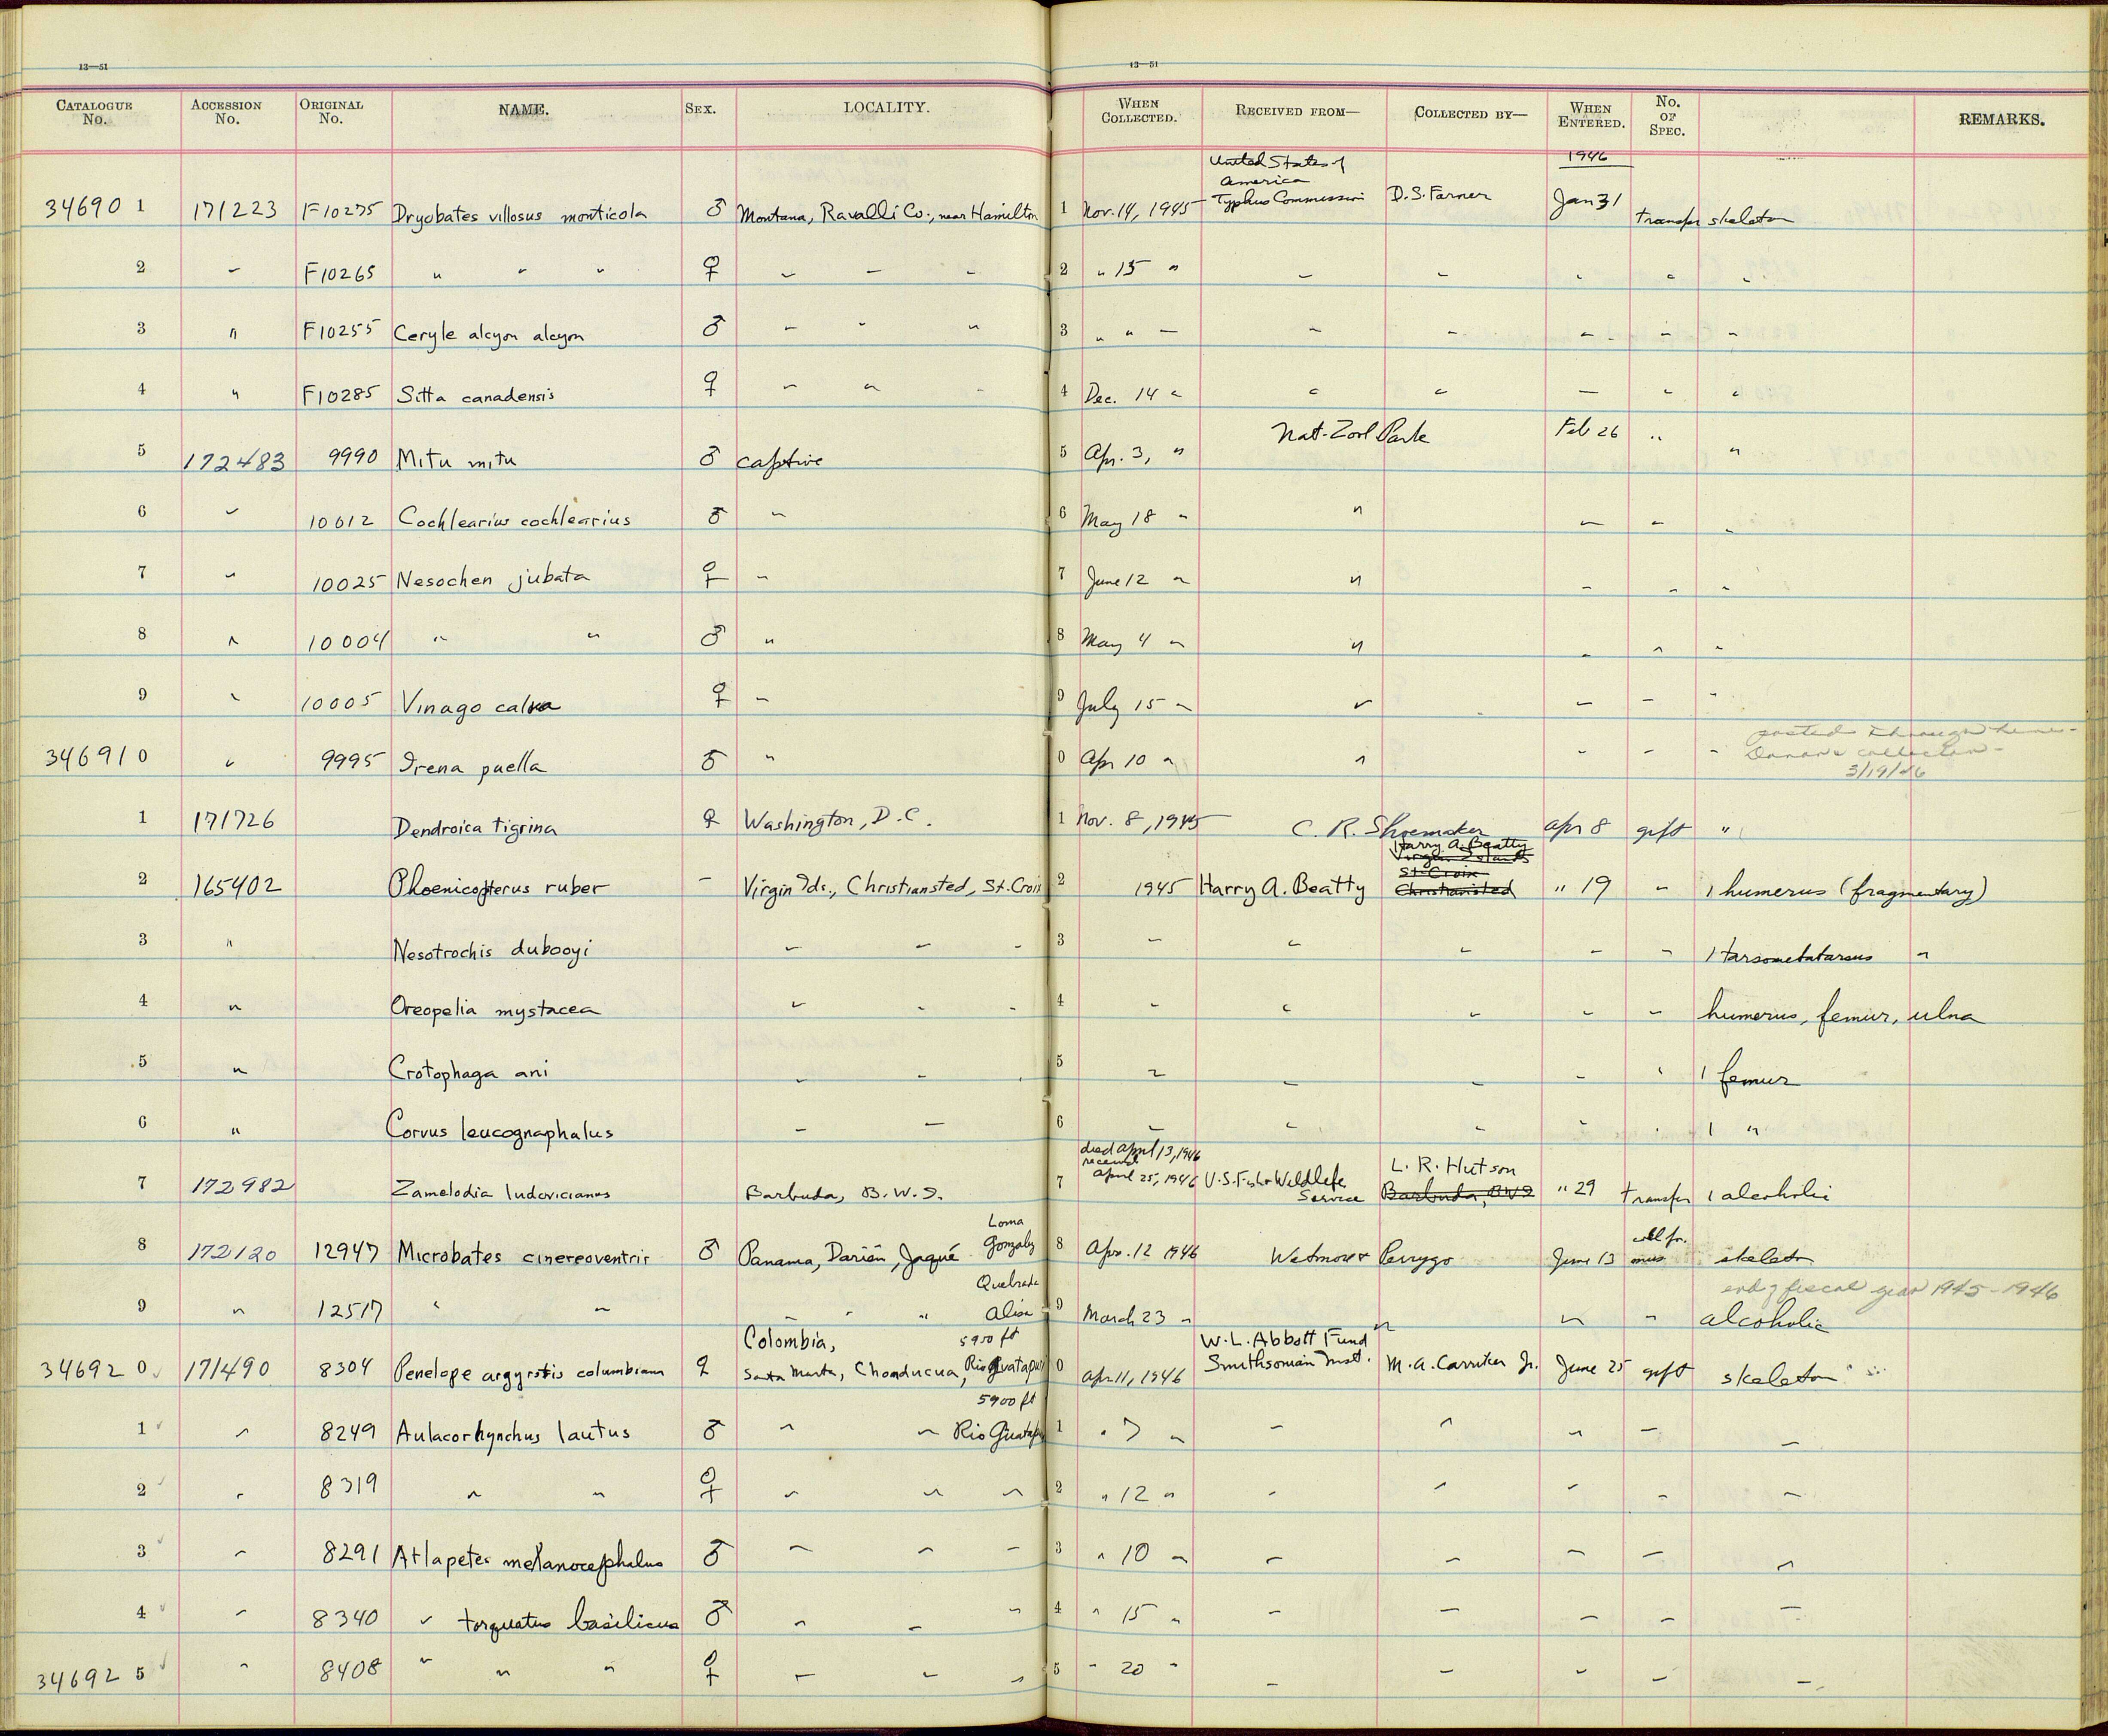 13—51 13—51
CATALOGUE No. ACCESSION No. ORIGINAL No. NAME. SEX. LOCALITY. WHEN COLLECTED. RECEIVED FROM— COLLECTED BY— WHEN ENTERED. No. OF SPEC. REMARKS.
United States of
America
1946
34690 1 171223 F10275 Dryobates villosus monticola ♂ Montana, Ravalli Co., near Hamilton 1 Nov. 14, 1945 Typhus Commission D.S. Farner Jan 31 transfer skeleton
2 " F10265 " " " ♀ " " " 2 " 15 " " " " " "
3 " F10255 Ceryle alcyon alcyon ♂ " " " 3 " " " " " " "
4 " F10285 Sitta canadensis ♀ " " " 4 Dec. 14 " " " " " "
5 172483 9990 Mitu mitu ♂ captive 5 Apr. 3, " Nat. Zool Park Feb 26 " "
6 " 10012 Cochlearius cochlearius ♂ " 6 May 18 " " " " "
7 " 10025 Nesochen jubata ♀ " 7 June 12 " " " " "
8 " 10004 " " ♂ " 8 May 4 " " " " "
9 " 10005 Vinago calva ♀ " 9 July 15 " " " " "
posted through here -
346910 " 9995 Irena puella ♂ " 0 Apr 10 " " " " "
3/19/46
1 171726 Dendroica tigrina ♀ Washington, D.C. 1 Nov. 8, 1945 C. R. Shoemaker Apr 8 gift "
Harry A. Beatty
Virgin Islands
St. Croix
2 165402 Phoenicopterus ruber – Virgin Ids., Christiansted, St. Croix 2 1945 Harry A. Beatty Christiansted " 19 " 1 humerus (fragmentary)
3 " Nesotrochis debooyi " " " 3 " " " " " 1 tarsometatarsus "
4 " Oreopelia mystacea " " " 4 " " " " " humerus, femur, ulna
5 " Crotophaga ani " " " 5 " " " " " 1 femur
6 " Corvus leucognaphalus " " 6 " " " " " 1 "
died April 13, 1946
received
L. R. Hutson
7 172982 Zamelodia ludovicianus Barbuda, B.W.I. 7 April 25, 1946 U.S. Fish & Wildlife Service Barbuda, BWI " 29 transfer 1 alcoholic
Loma
8 172120 12947 Microbates cinereoventris ♂ Panama, Darién, Jaqué Gonzalez 8 Apr. 12 1946 Wetmore & Perrygo June 13 coll. for. mus skeleton
Quebrada
end of fiscal year 1945-1946
9 " 12517 " " " " Alisa 9 March 23 " " " " alcoholic
Colombia, 5950 ft
W. L. Abbott Fund
346920 171490 8304 Penelope argyrotis columbiana ♀ Santa Marta, Chonducua, Rio Guatapuri 0 Apr 11, 1946 Smithsonian Inst. M. A. Carriker Jr. June 25 gift skeleton
5900 ft
1 " 8249 Aulacorhynchus lautus ♂ " " Rio Guatapuri 1 " 7 " " " " " "
2 " 8319 " " ♀ " " " 2 " 12 " " " " " "
3 " 8291 Atlapetes melanocephalus ♂ " " " 3 " 10 " " " " " "
4 " 8340 " torquatus basilicus ♂ " " " 4 " 15 " " " " " "
346925 " 8408 " " " ♀ " " " 5 " 20 " " " " " "